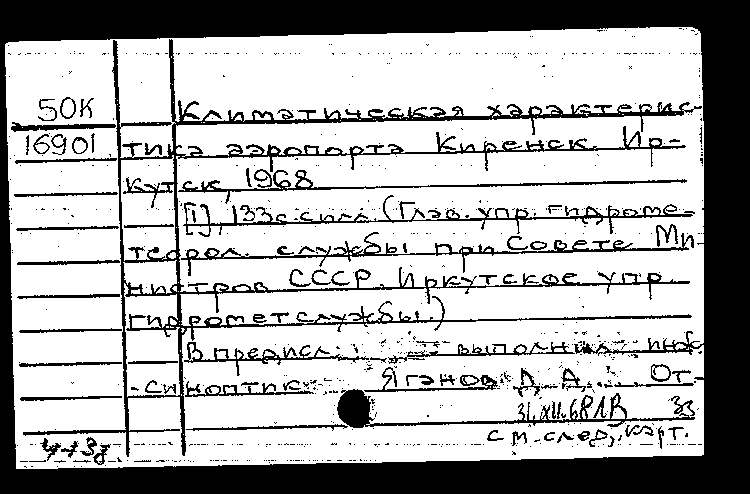 50К Климатическая характерис-
16901 тика аэропорта Киренск. Ир-
кутск, 1968
[1], 133с. с илл. (Глав. упр. гидроме-
теорол. службы при Совете Ми-
нистров СССР. Иркутское упр.
гидрометслужбы.)
В предисл.: выполнил инж.
-синоптик Яганов Д. А. От-
31.XII.68 ЛВ 33
см. след. карт.